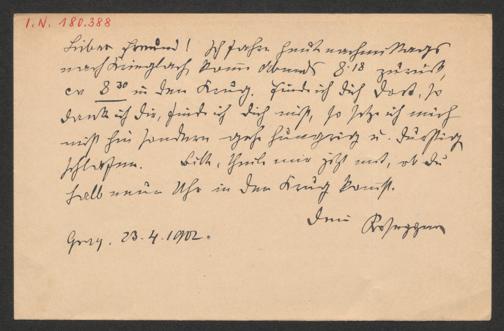 I.N. 180.388
Lieber Freund! Ich fahre heut nachmittags
nach Krieglach, komme abends 8·18 zurück,
ca 8 30 in den Krug. Finde ich dich dort, so
dank ich dir, finde ich dich nicht, so setze ich mich
nicht hin sondern gehe hungrig u. durstig
schlafen. Bitte, theile mir jetzt mit, ob du
halb neun Uhr in den Krug kommst.
Dein Rosegger
Graz. 23.4.1902.